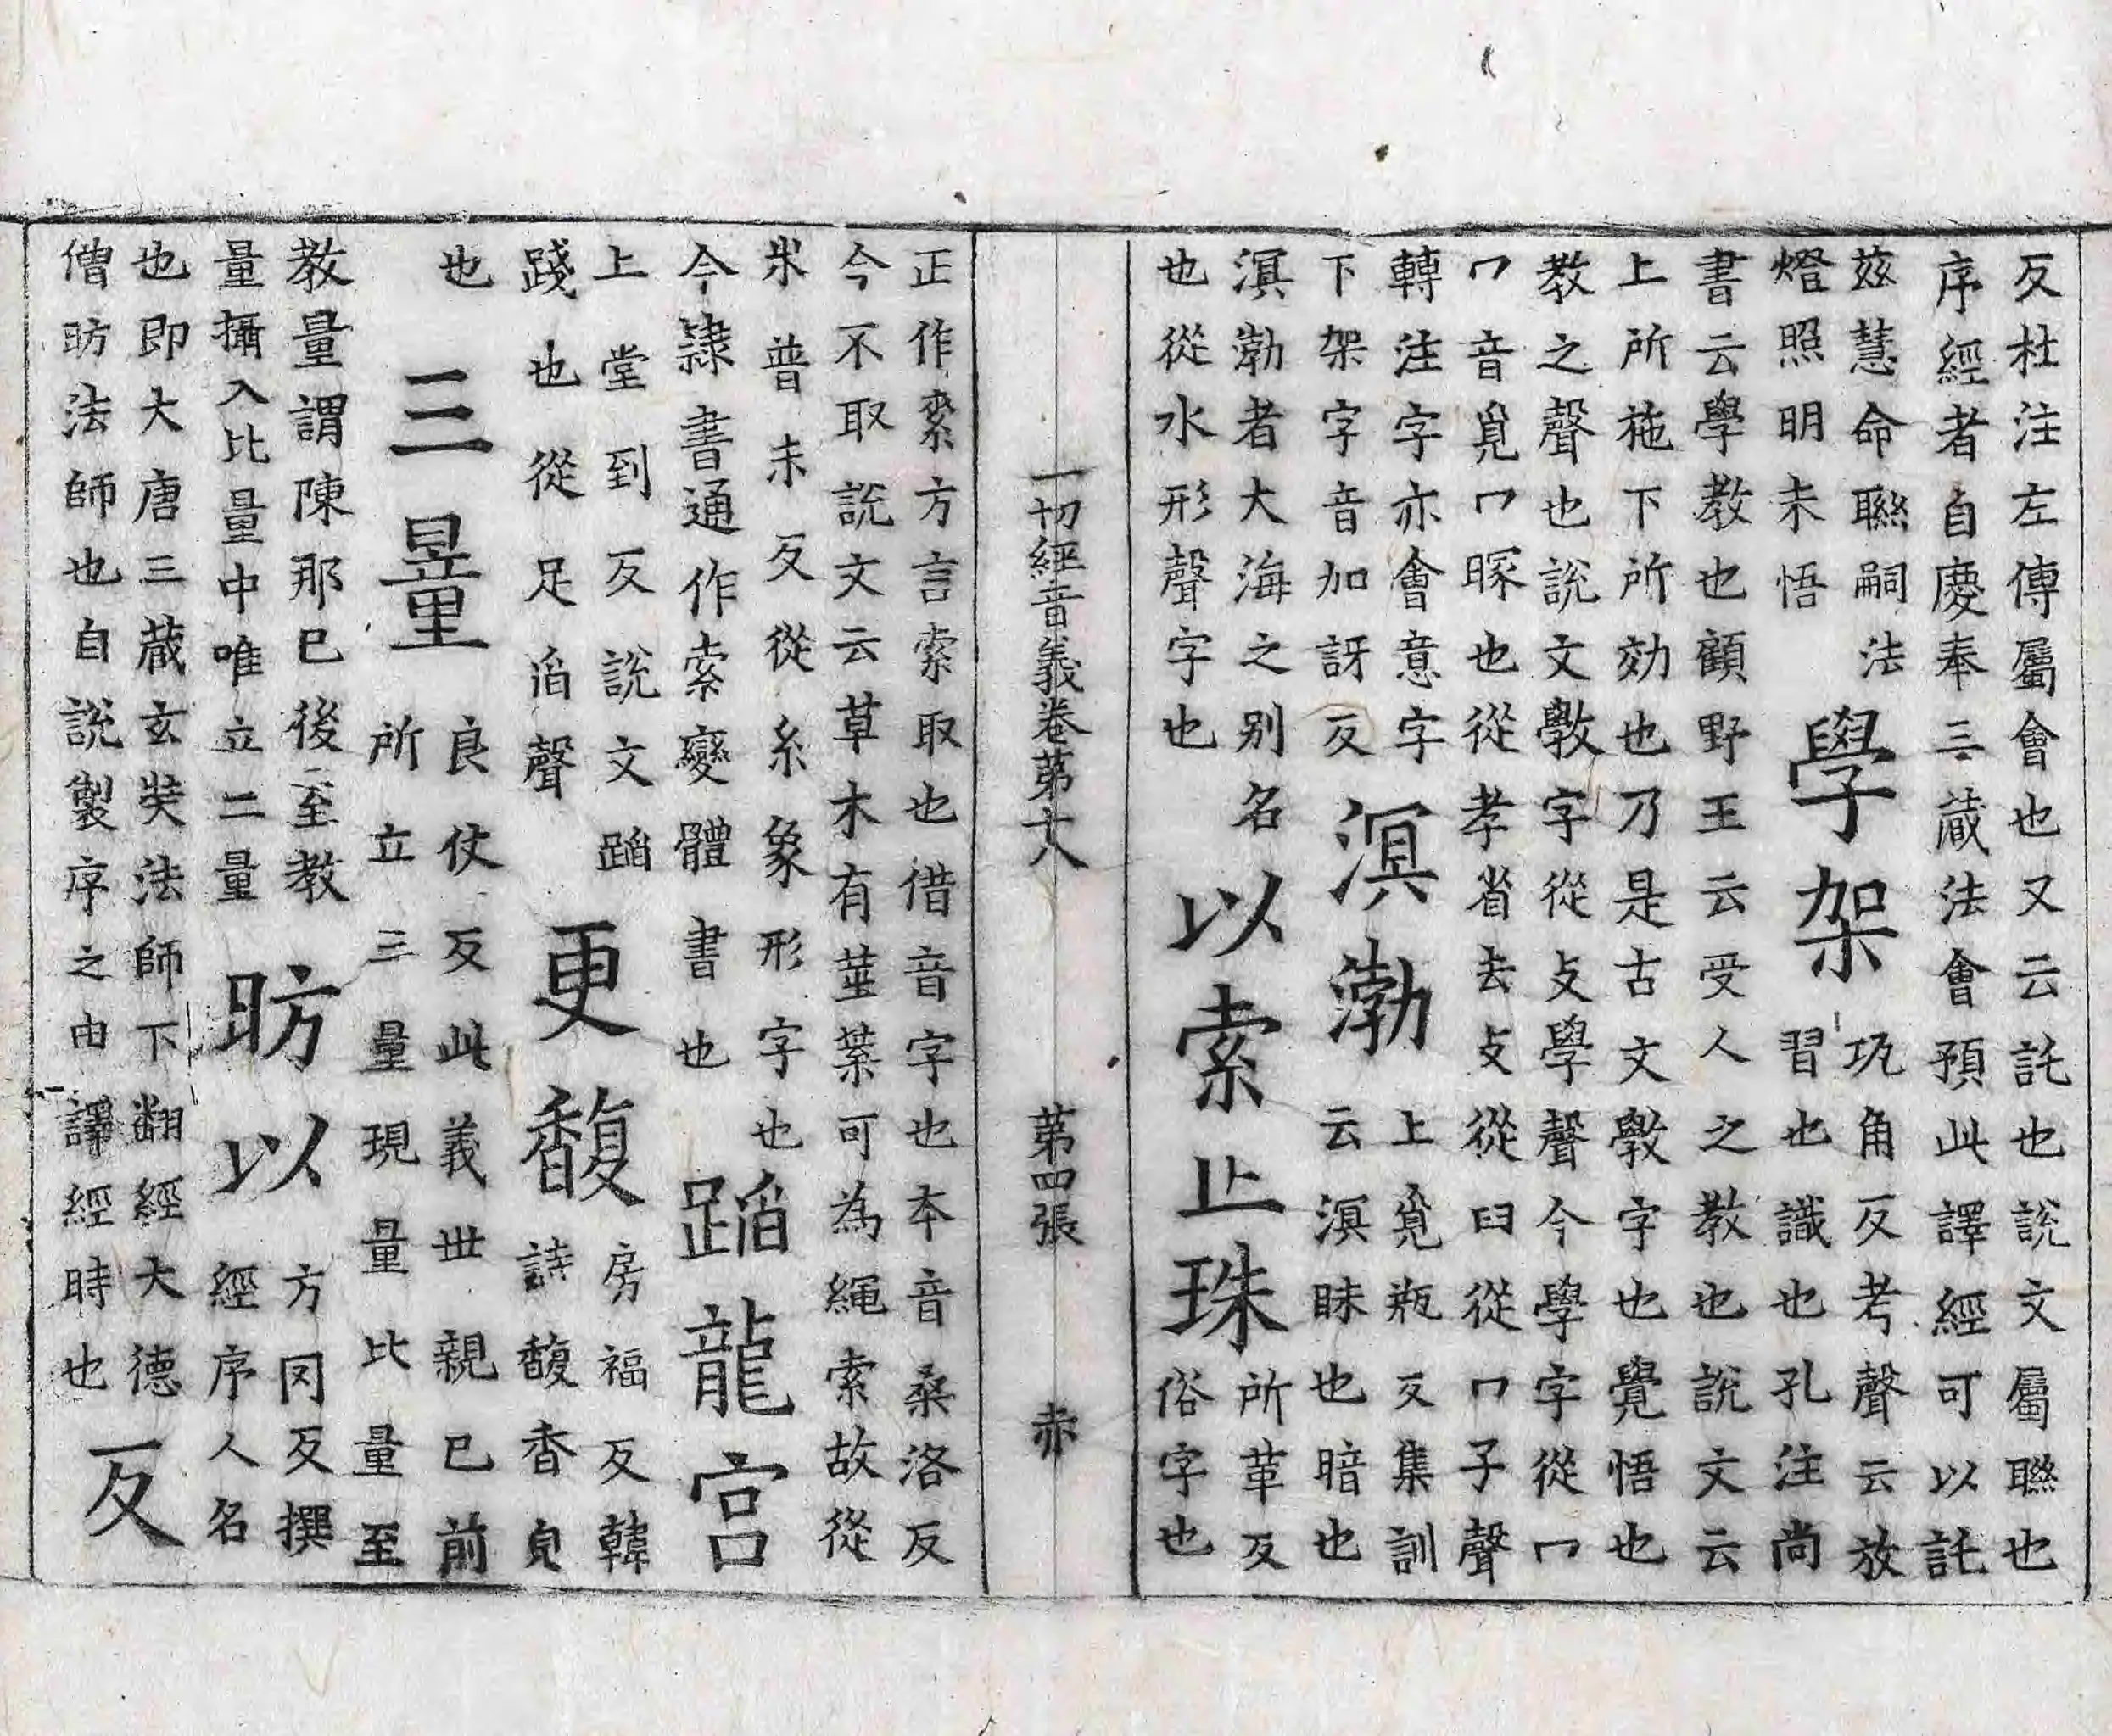 反杜注左傳屬會也又云託也說文屬聯也
序經者自慶奉三蔵法會預此譯經可以託
茲慧命聯嗣法
燈照明未悟
學架
巩角反考聲云放
習也識也孔注尚
書云學教也顧野王云受人之教也說文云
上所施下所効也乃是古文斅字也覺悟也
教之聲也說文斆字從攴學聲今學字從冖
冖音覓冖也從孝省去攴從臼從冖子聲
轉注字亦會意字
下架字音加訝反
溟渤
上覓瓶反集訓
云溟眛也暗也
溟渤者大海之别名
也從水形聲字也
以索止珠
所革反
俗字也
一切經音義卷第十八 第四張 赤
正作索方言索取也借音字也本音桑洛反
今不取說文云草木有莖葉可為繩索故從
𣎵普末反從糸象形字也
今隸書通作索變體書也
蹈龍宮
上堂到反說文蹈
踐也從足舀聲
更馥
房福反韓
詩馥香皃
也
三量
良仗反此義世親已前
所立三量現量比量至
教量謂陳那已後至教
量攝入比量中唯立二量
昉以
方罔反撰
經序人名
也即大唐三蔵玄奘法師下翻經大德
僧昉法師也自說製序之由譯經時也
反